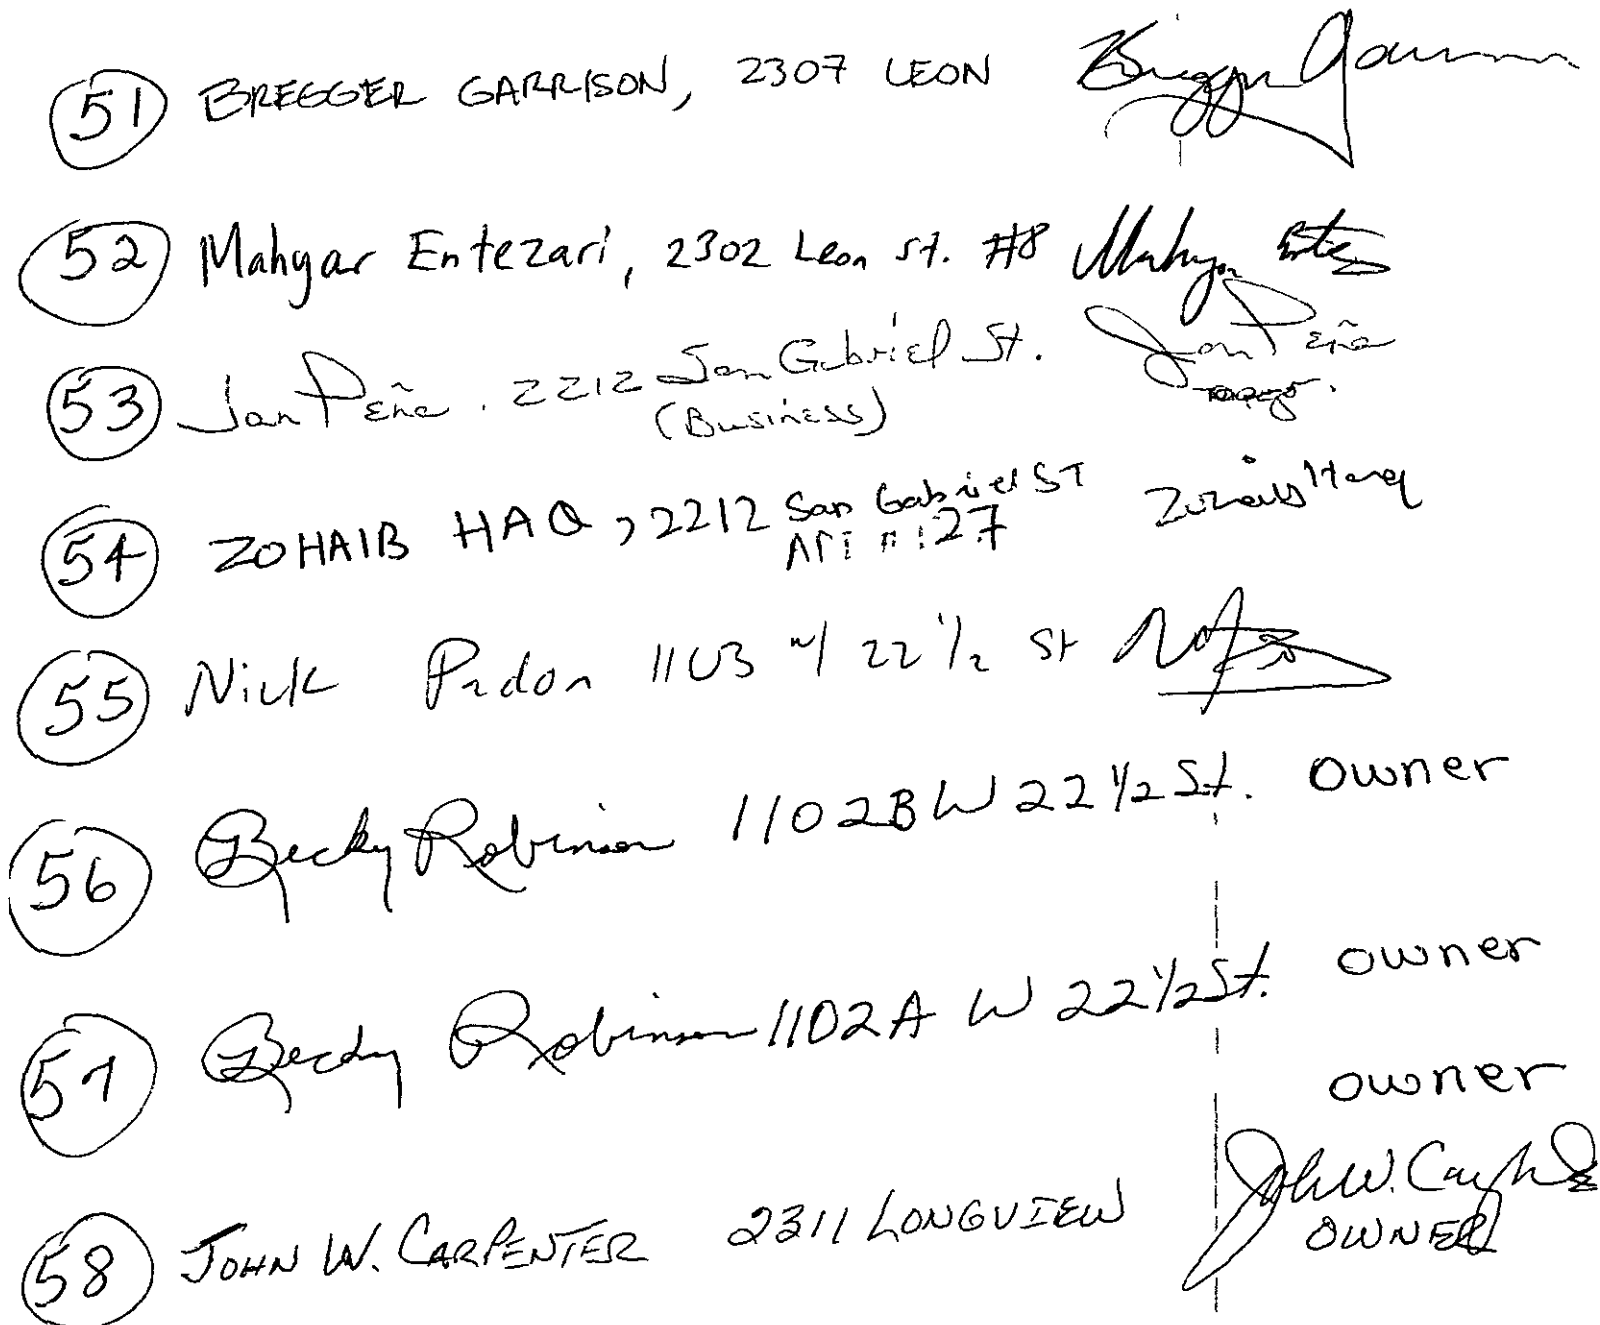 51 BREGGER GARRISON, 2307 LEON Bregger Garrison
52 Mahyar Entezari, 2302 Leon St. #8 Mahyar
53 Jan Peña. 2212 San Gabriel St. Jan Peña
(Business)
54 ZOHAIB HAQ, 2212 San Gabriel ST Zohaib Haq
127
55 Nick Padon 1103 W 22 1/2 St
56 Becky Robinson 1102B W 22 1/2 St. owner
57 Becky Robinson 1102A W 22 1/2 St. owner
owner
58 JOHN W. CARPENTER 2311 LONGVIEW John W. Carpenter
OWNER